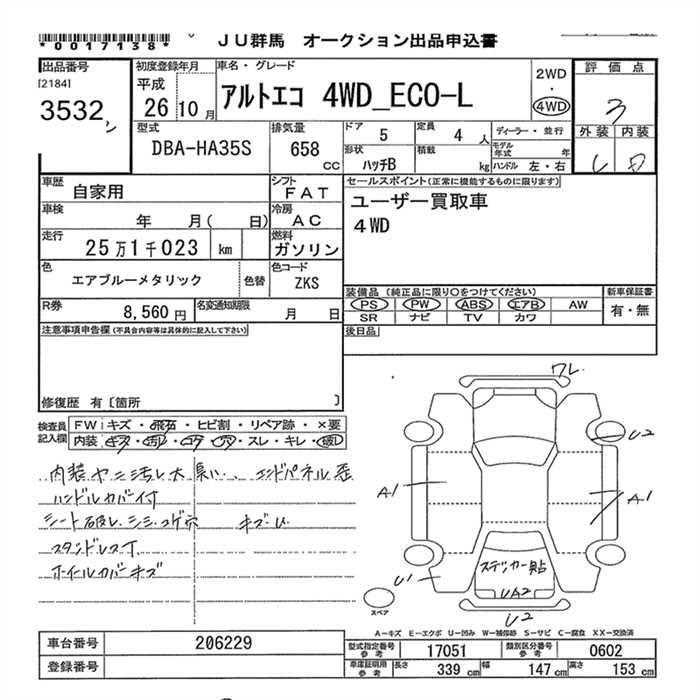 *0017138*
JU群馬 オークション出品申込書
出品番号 初度登録年月 車名・グレード 評価点
[2184] 平成 2WD
3532 26年10月 アルトエコ 4WD_ECO-L 4WD 3
外装 内装
型式 排気量 ドア 5 定員 4人 ディーラー・並行
DBA-HA35S 658 CC 形状 ハッチB 積載 kg モデル年式 年
ハンドル 左・右
車歴 自家用 シフト FAT セールスポイント(正常に機能するものに限ります)
車検 年 月( 日) 冷房 AC ユーザー買取車
走行 25万1千023 km 燃料 ガソリン 4WD
色 エアブルーメタリック 色替 色コード ZKS
装備品(純正品に限り○をつけてください) 新車保証書
R券 8,560円 名変通知期限 月 日 PS PW ABS エアB AW 有・無
SR ナビ TV カワ
注意事項申告欄(不具合内容等は具体的に記入して下さい) 後日品
修復歴 有〔箇所 〕
検査員記入欄 FW キズ・飛石・ヒビ割・リペア跡・×要
内装 キズ・汚レ・コゲ・穴・スレ・キレ・破レ
内装ヤニ汚レ大 臭い、
ハンドルカバー付
シート破レ シミ コゲ穴 キズU
スタンドレス
ホイールカバーキズ
ワレ
U2
A1 A1
U1 ステッカー貼
UA2
U2
スペア
A-キズ E-エクボ U-凹み W-補修跡 S-サビ C-腐食 XX-交換済
車台番号 206229 型式指定番号参考 17051 類別区分番号参考 0602
登録番号 車庫証明用参考 長さ 339 cm 幅 147 cm 高さ 153 cm